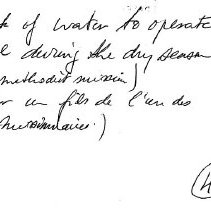 k of water to operate
l during the dry season
methodist mission)
r un fils de l'un des
missionnaires.)